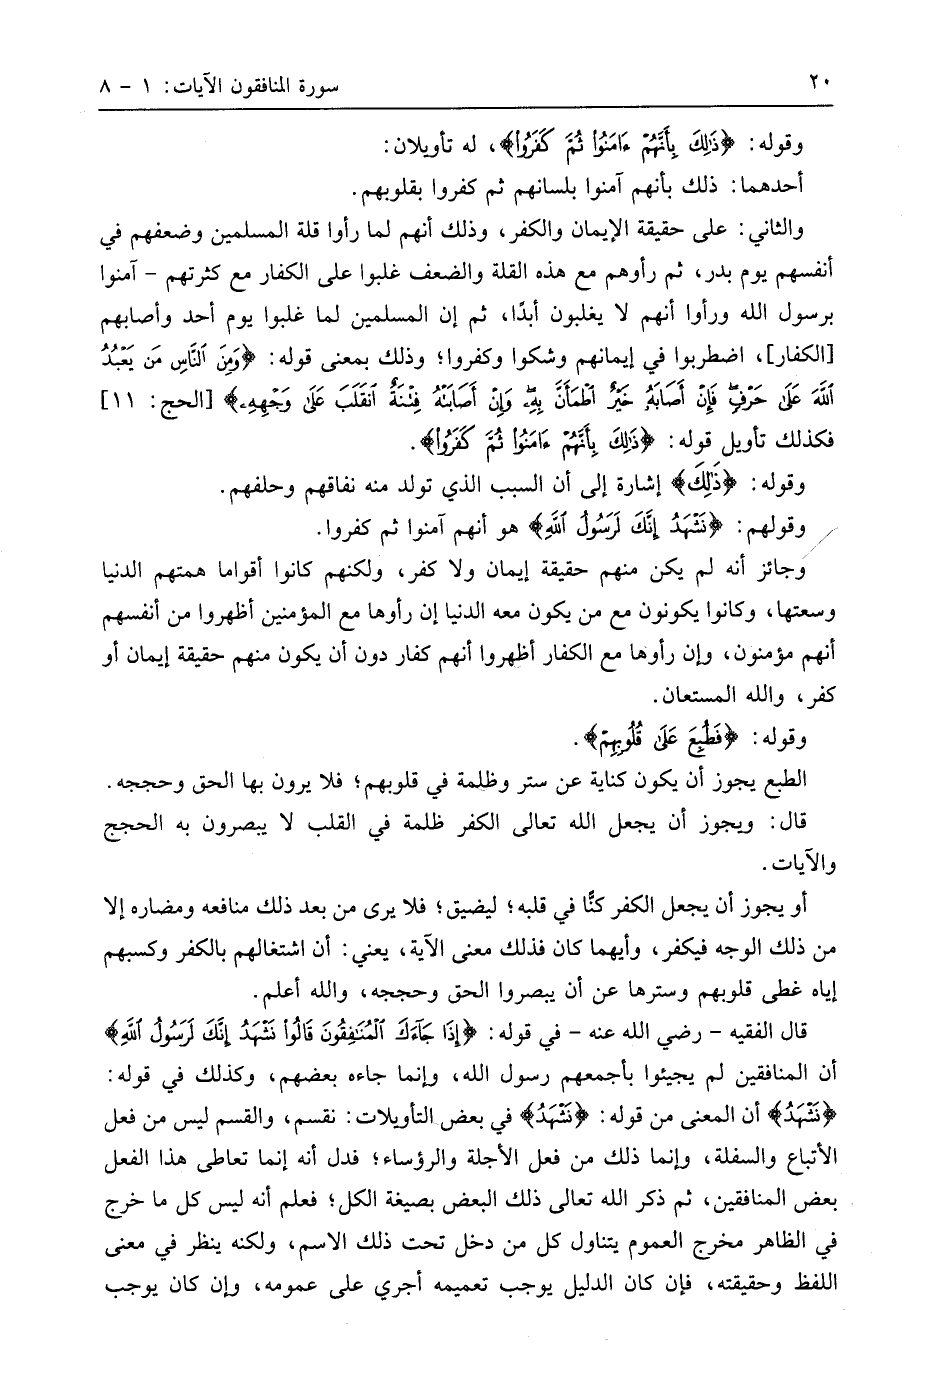 ٢٠ سورة المنافقون الآيات: ١ - ٨
وقوله: ﴿ذَٰلِكَ بِأَنَّهُمْ ءَامَنُوا۟ ثُمَّ كَفَرُوا۟﴾، له تأويلان:
أحدهما: ذلك بأنهم آمنوا بلسانهم ثم كفروا بقلوبهم.
والثاني: على حقيقة الإيمان والكفر، وذلك أنهم لما رأوا قلة المسلمين وضعفهم في
أنفسهم يوم بدر، ثم رأوهم مع هذه القلة والضعف غلبوا على الكفار مع كثرتهم - آمنوا
برسول الله ورأوا أنهم لا يغلبون أبدًا، ثم إن المسلمين لما غلبوا يوم أحد وأصابهم
[الكفار]، اضطربوا في إيمانهم وشكوا وكفروا؛ وذلك بمعنى قوله: ﴿وَمِنَ ٱلنَّاسِ مَن يَعْبُدُ
ٱللَّهَ عَلَىٰ حَرْفٍ فَإِنْ أَصَابَهُۥ خَيْرٌ ٱطْمَأَنَّ بِهِۦ وَإِنْ أَصَابَتْهُ فِتْنَةٌ ٱنقَلَبَ عَلَىٰ وَجْهِهِۦ﴾ [الحج: ١١]
فكذلك تأويل قوله: ﴿ذَٰلِكَ بِأَنَّهُمْ ءَامَنُوا۟ ثُمَّ كَفَرُوا۟﴾.
وقوله: ﴿ذَٰلِكَ﴾ إشارة إلى أن السبب الذي تولد منه نفاقهم وحلفهم.
وقولهم: ﴿نَشْهَدُ إِنَّكَ لَرَسُولُ ٱللَّهِ﴾ هو أنهم آمنوا ثم كفروا.
وجائز أنه لم يكن منهم حقيقة إيمان ولا كفر، ولكنهم كانوا أقواما همتهم الدنيا
وسعتها، وكانوا يكونون مع من يكون معه الدنيا إن رأوها مع المؤمنين أظهروا من أنفسهم
أنهم مؤمنون، وإن رأوها مع الكفار أظهروا أنهم كفار دون أن يكون منهم حقيقة إيمان أو
كفر، والله المستعان.
وقوله: ﴿فَطُبِعَ عَلَىٰ قُلُوبِهِمْ﴾.
الطبع يجوز أن يكون كناية عن ستر وظلمة في قلوبهم؛ فلا يرون بها الحق وحججه.
قال: ويجوز أن يجعل الله تعالى الكفر ظلمة في القلب لا يبصرون به الحجج
والآيات.
أو يجوز أن يجعل الكفر كنًّا في قلبه؛ ليضيق؛ فلا يرى من بعد ذلك منافعه ومضاره إلا
من ذلك الوجه فيكفر، وأيهما كان فذلك معنى الآية، يعني: أن اشتغالهم بالكفر وكسبهم
إياه غطى قلوبهم وسترها عن أن يبصروا الحق وحججه، والله أعلم.
قال الفقيه - رضي الله عنه - في قوله: ﴿إِذَا جَآءَكَ ٱلْمُنَٰفِقُونَ قَالُوا۟ نَشْهَدُ إِنَّكَ لَرَسُولُ ٱللَّهِ﴾
أن المنافقين لم يجيئوا بأجمعهم رسول الله، وإنما جاءه بعضهم، وكذلك في قوله:
﴿نَشْهَدُ﴾ أن المعنى من قوله: ﴿نَشْهَدُ﴾ في بعض التأويلات: نقسم، والقسم ليس من فعل
الأتباع والسفلة، وإنما ذلك من فعل الأجلة والرؤساء؛ فدل أنه إنما تعاطى هذا الفعل
بعض المنافقين، ثم ذكر الله تعالى ذلك البعض بصيغة الكل؛ فعلم أنه ليس كل ما خرج
في الظاهر مخرج العموم يتناول كل من دخل تحت ذلك الاسم، ولكنه ينظر في معنى
اللفظ وحقيقته، فإن كان الدليل يوجب تعميمه أجري على عمومه، وإن كان يوجب